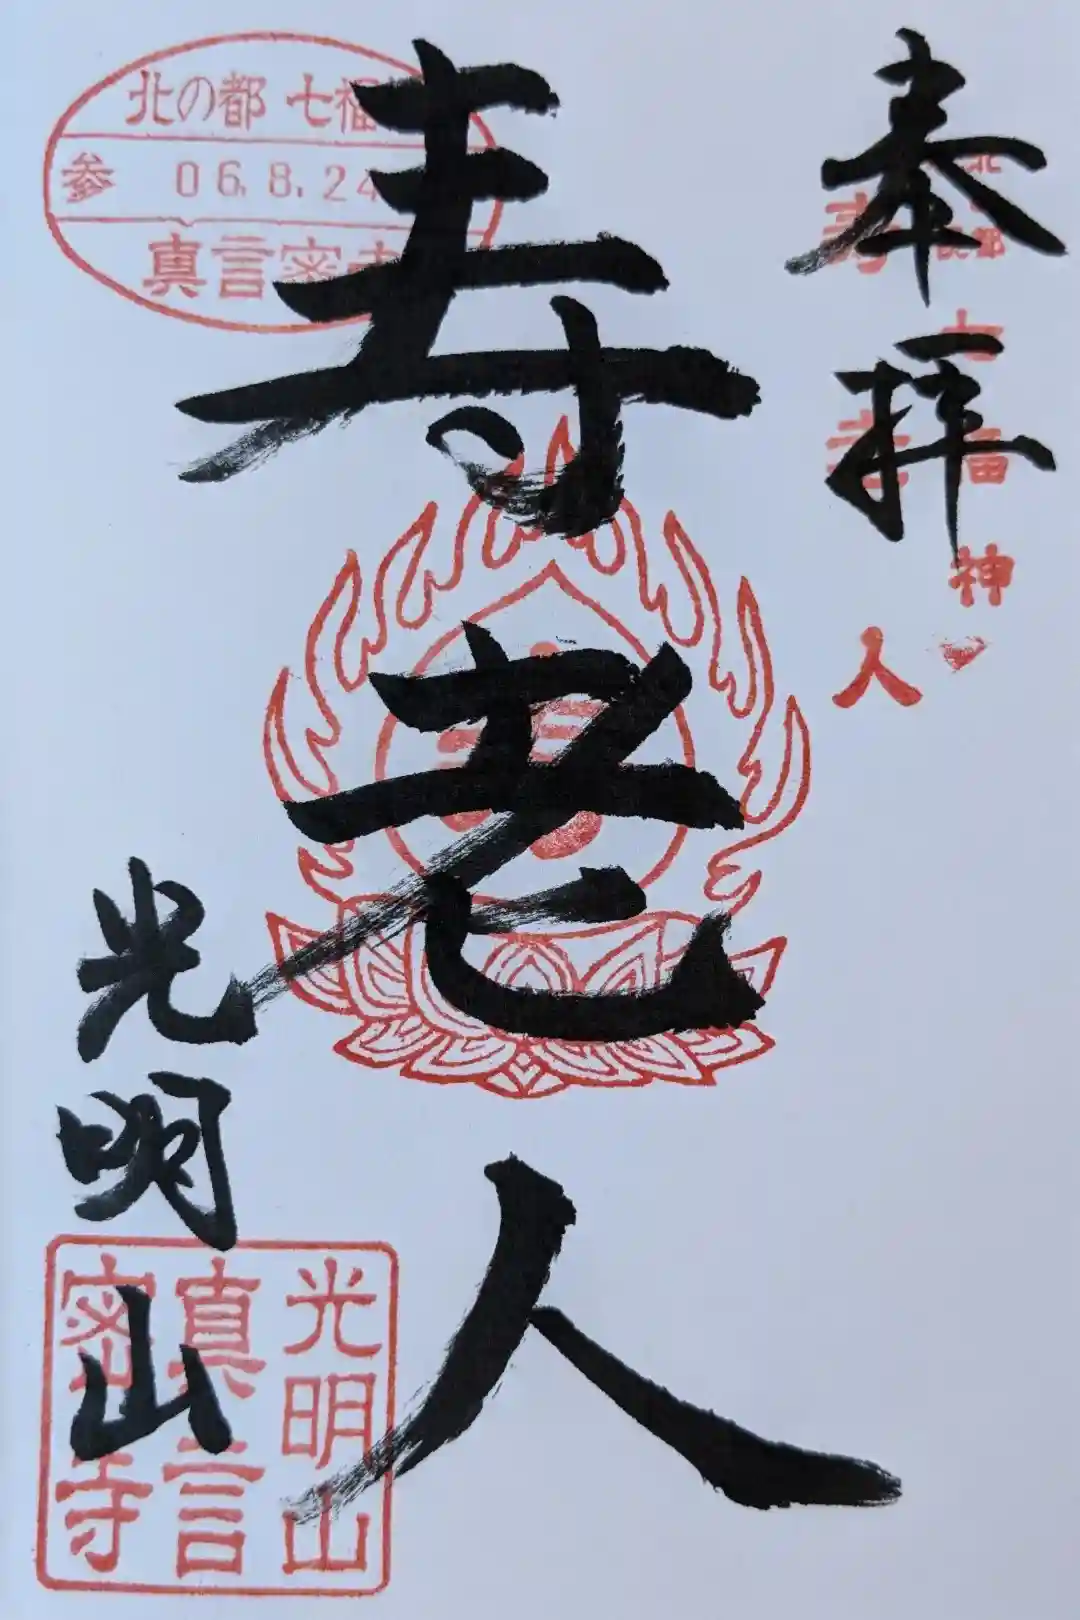 奉拝
北の都七福神
寿老人
寿老人
光明山
北の都 七福
参 06.8.24
真言密寺
光明山
真言
密寺